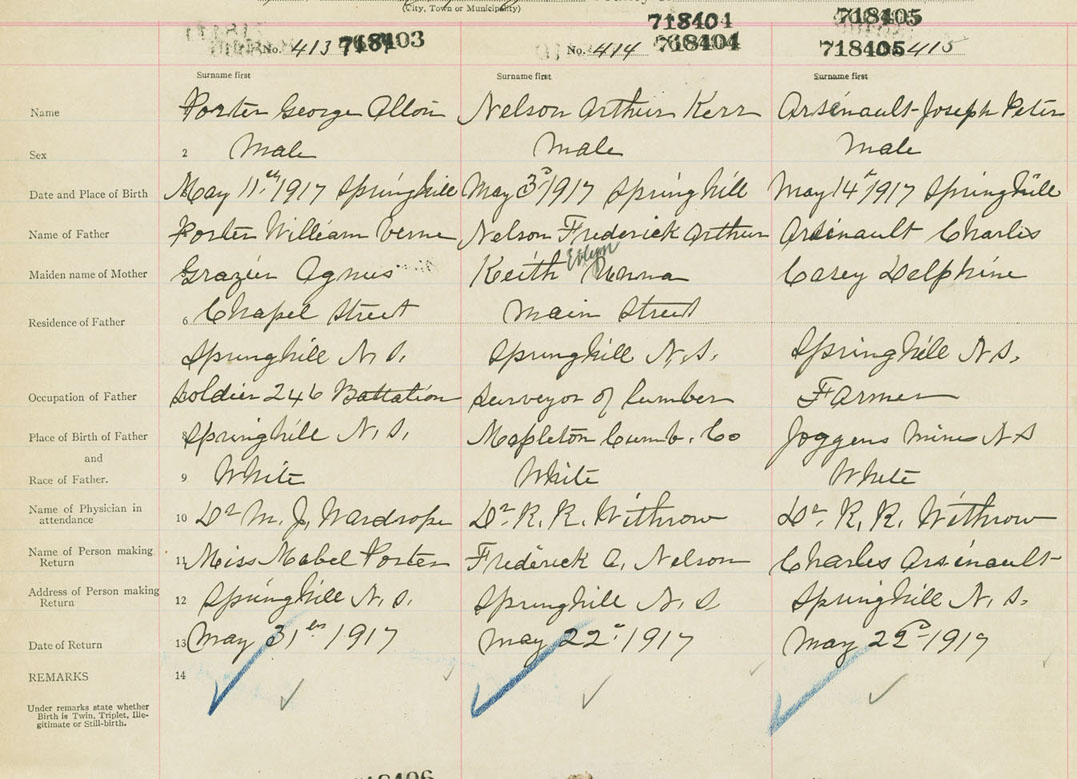 (City, Town or Municipality)
718404 718405
No. 413 718403 No. 414 718404 718405 415
Surname first Surname first Surname first
Name Porter George Allon Nelson Arthur Kerr Arsenault Joseph Peter
Sex 2 Male Male Male
Date and Place of Birth May 11th 1917 Springhill May 3d 1917 Springhill May 14th 1917 Springhill
Name of Father Porter William Verne Nelson Frederick Arthur Arsenault Charles
Evelyn
Maiden name of Mother Grazier Agnus Keith Casey Delphine
Residence of Father 6 Chapel Street Main Street
Springhill N.S. Springhill N.S. Springhill N.S.
Occupation of Father Soldier 246 Battation Surveyor of lumber Farmer
Place of Birth of Father 8 Springhill N.S. Mapleton Cumb. Co Joggens Mines N.S
and
Race of Father. 9 White White White
Name of Physician in
attendance 10 Dr M. J. Wardrope Dr. R. R. Withrow Dr. R. R. Withrow
Name of Person making
Return 11 Miss Mabel Porter Frederick A. Nelson Charles Arsenault
Address of Person making
Return 12 Springhill N.S. Springhill N.S Springhill N.S.
Date of Return 13 May 31st 1917 May 22d 1917 May 22d 1917
REMARKS 14
Under remarks state whether
Birth is Twin, Triplet, Ille-
gitimate or Still-birth.
718406